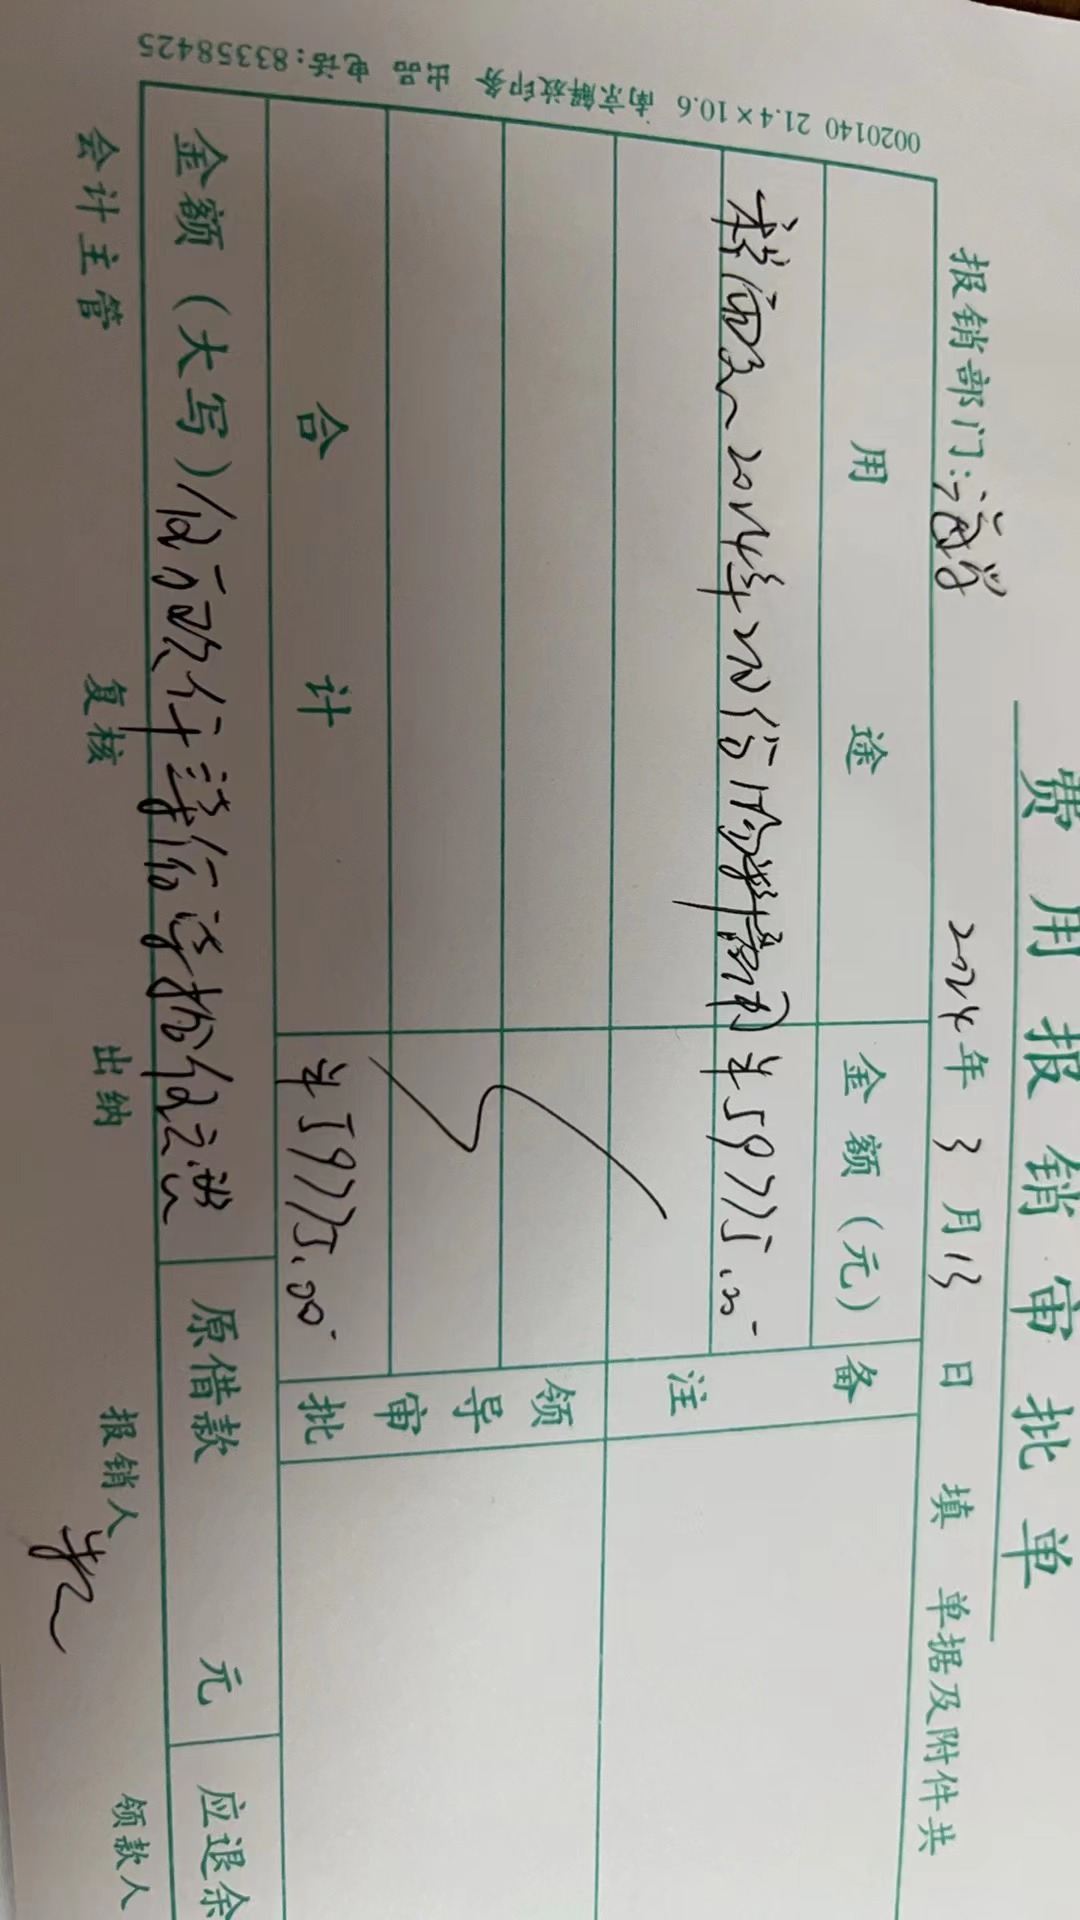 费用报销审批单
报销部门: 2024年3月13日填 单据及附件共
用途 金额(元) 备注
2024年2月份 ¥59775.00
领导审批
合计 ¥59775.00
金额(大写)伍万玖仟柒佰柒拾伍元整 原借款 元 应退余
会计主管 复核 出纳 报销人 领款人
0020140 21.4×10.6 南京解放印务 出品 电话:83358425